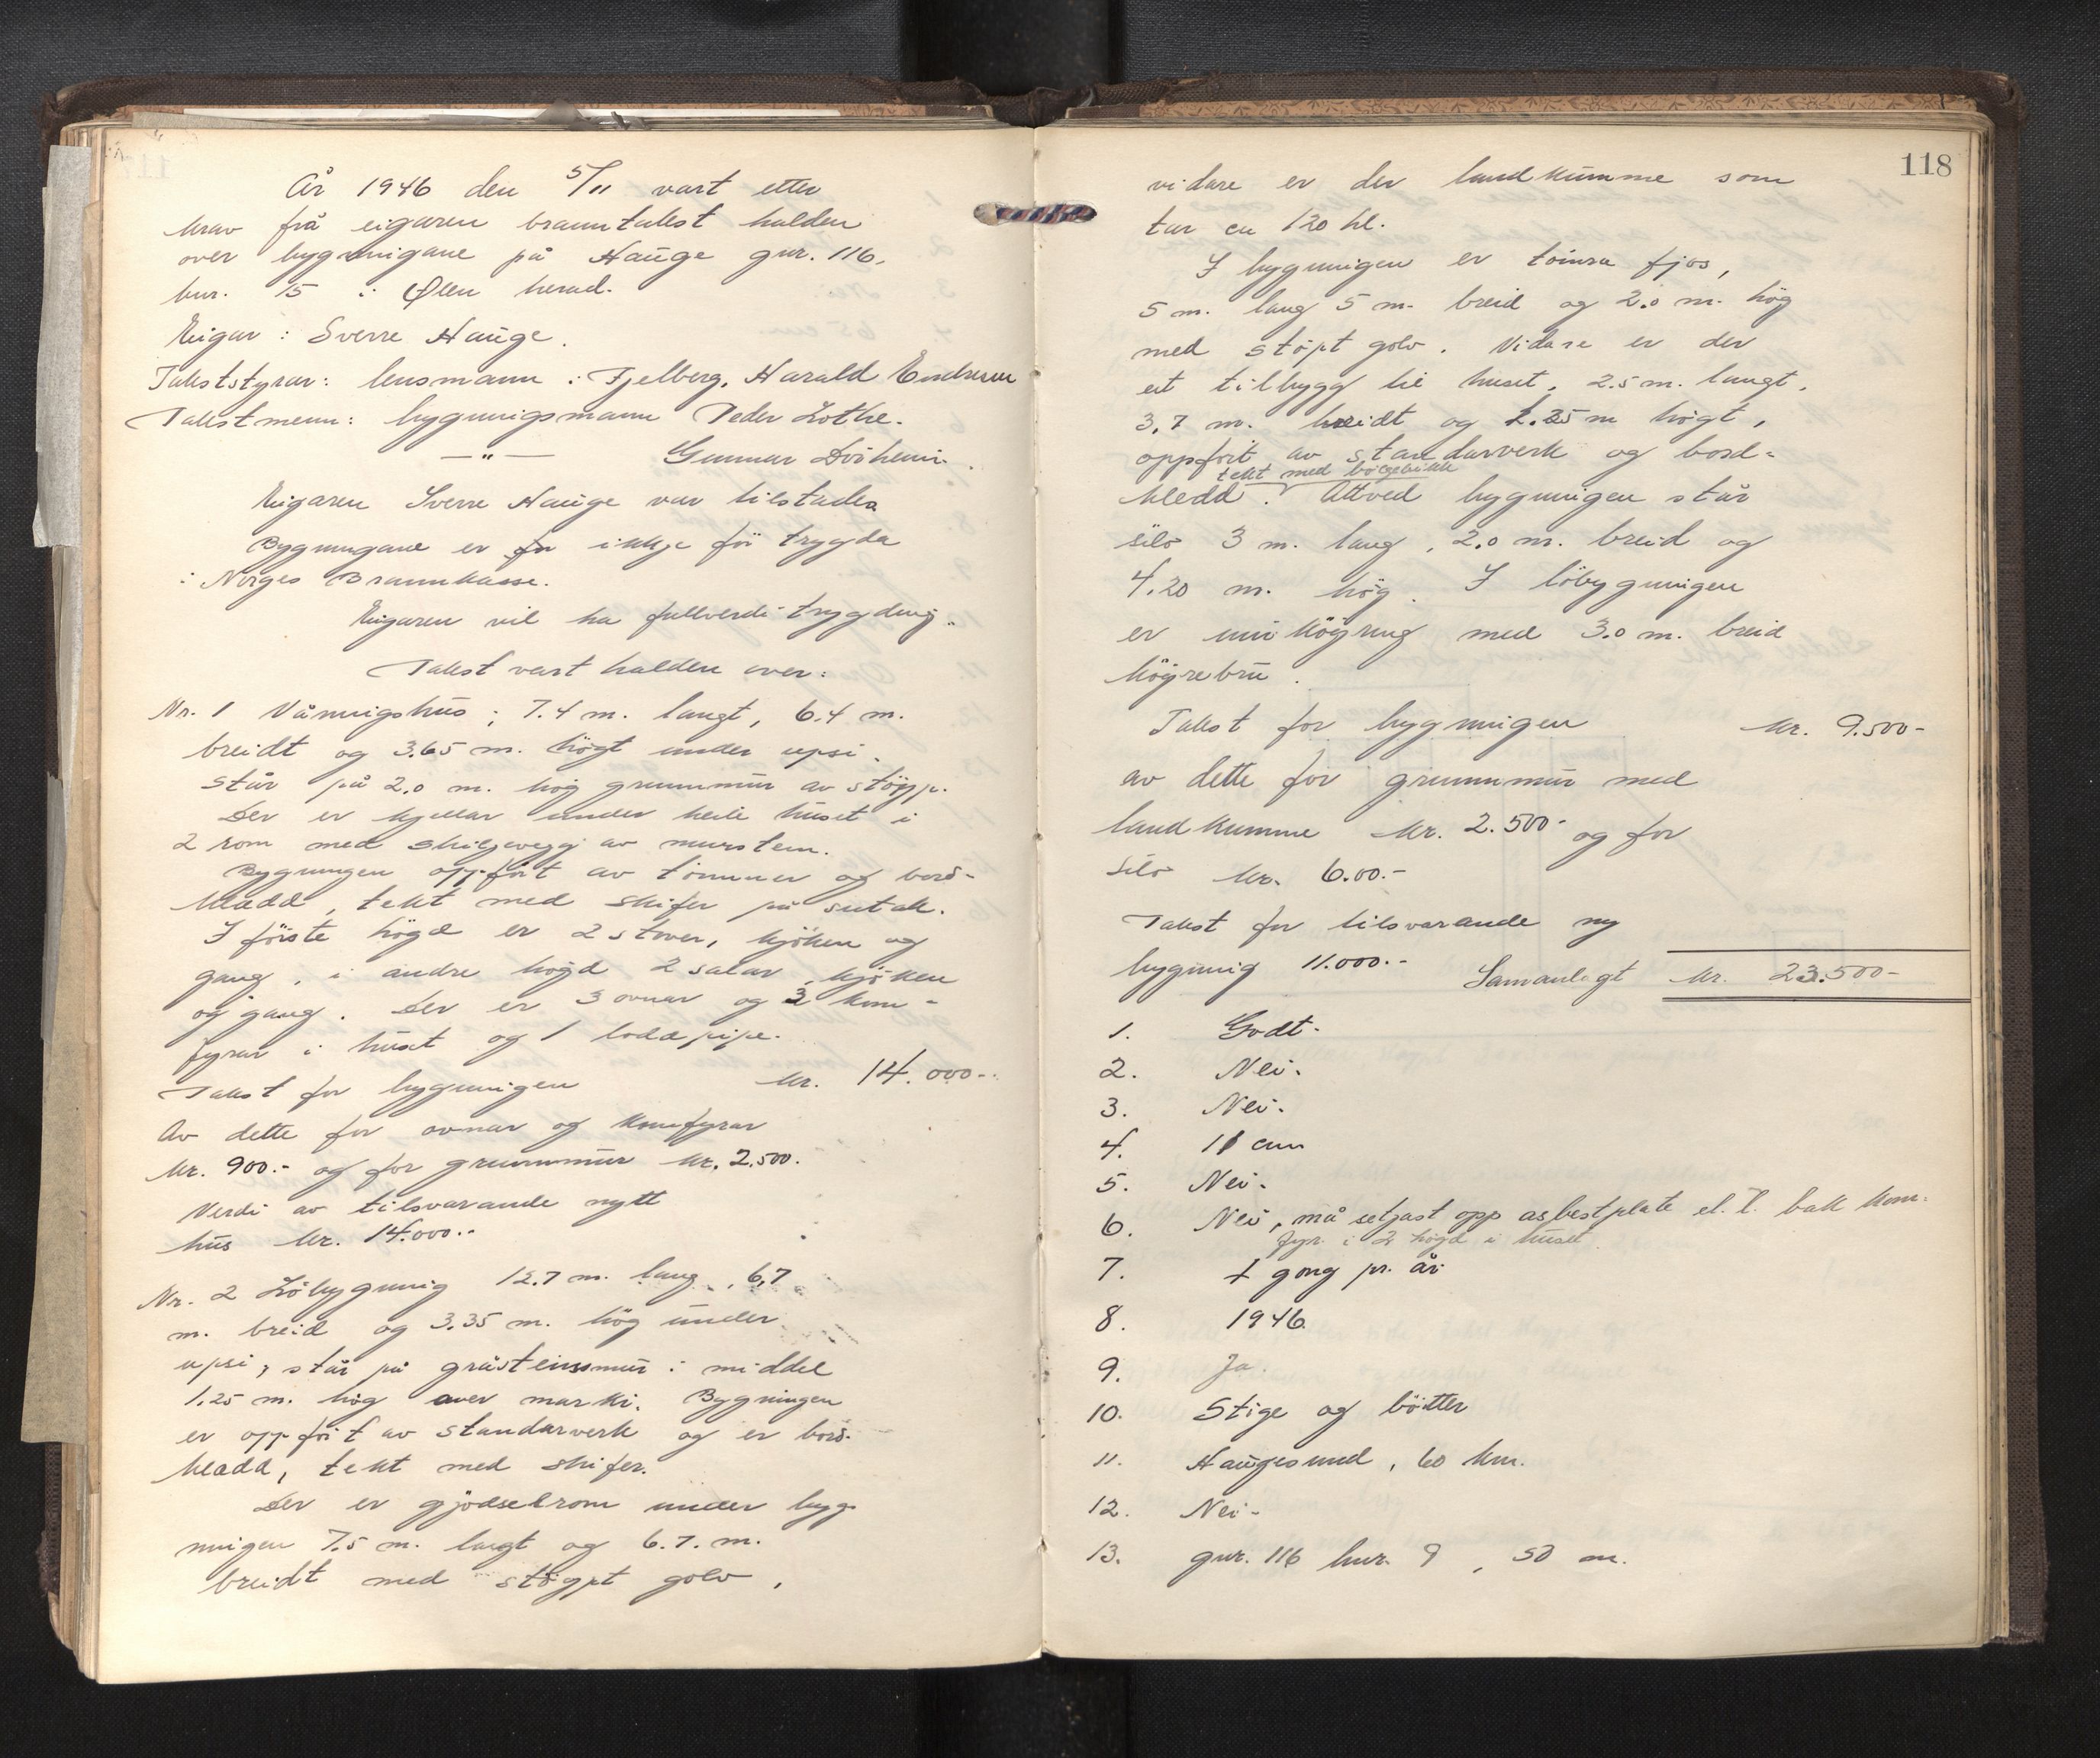 År 1946 den 5/11 vart etter
krav frå eigaren branntakst halden
over bygningane på Hauge gnr. 116,
bnr. 15 i Ølen herad.
Eigar: Sverre Hauge.
Takststyrar: lensmann i Fjelberg, Harald Endresen
Takstmenn: bygningsmann Peder Lothe.
—"— Gunnar
Eigaren Sverre Hauge var tilstades
Bygningane er før ikkje før trygda
i Norges Brannkasse.
Eigaren vil ha fullverdi trygding.
Takst vart halden over:
Nr. 1 Våningshus; 7.4 m. langt, 6.4 m.
breidt og 3.65 m. högt under upsi.
Står på 2.0 m. høg grunnmur av støyp.
Der er kjellar under heile huset i
2 rom med skiljevegg av murstein.
Bygningen oppfört av tömmer og bord-
kledd, tekt med skifer på sutak.
I første högd er 2 stover, kjöken og
gang, i andre högd 2 salar, kjöken
og gang. Der er 3 ovnar og 2 kom-
fyrar i huset og 1 loddpipe.
Takst for bygningen kr. 14.000.-
Av dette for ovnar og komfyrar
kr. 900.- og for grunnmur kr. 2.500.
Verdi av tilsvarande nytt
hus kr. 14.000.-
Nr. 2 Löbygning 12.7 m. lang, 6,7
m. breid og 3.35 m. hög under
upsi, står på gråsteinsmur i middel
1.25 m. hög over marki. Bygningen
er oppfört av standarverk og er bord-
kledd, tekt med skifer.
Der er gjødselrom under byg-
ningen 7.5 m. langt og 6.7. m.
breidt med støypt golv,
118
vidare er der landkumme som
tar ca 120 hl.
I bygningen er tömra fjos,
5 m. lang 5 m. breid og 2.0 m. hög
med stöpt golv. Vidare er der
eit tilbygg til huset, 2.5 m. langt,
3.7 m. breidt og 2.25 m högt,
oppfört av standarverk og bord-
tekt med bølgeblikk
kledd. Attved bygningen står
silo 3 m. lang, 2.0 m. breid og
4.20 m. høg. I löbygningen
er innköyring med 3.0 m. breid
köyrebru.
Takst for bygningen kr. 9.500-
av dette for grunnmur med
landkumme kr. 2.500- og for
silo kr. 6.00.-
Takst for tilsvarande ny
bygning 11.000.- Samanlagt kr. 23.500-
1. Godt.
2. Nei.
3. Nei.
4. 11 cm
5. Nei.
6. Nei, må setjast opp asbestplate el. l. bak kom-
fyr i 2 högd i huset.
7. 1 gong pr. år
8. 1946.
9. Ja.
10. Stige og bötter
11. Haugesund, 60 km.
12. Nei-
13. gnr. 116 bnr. 9, 50 m.